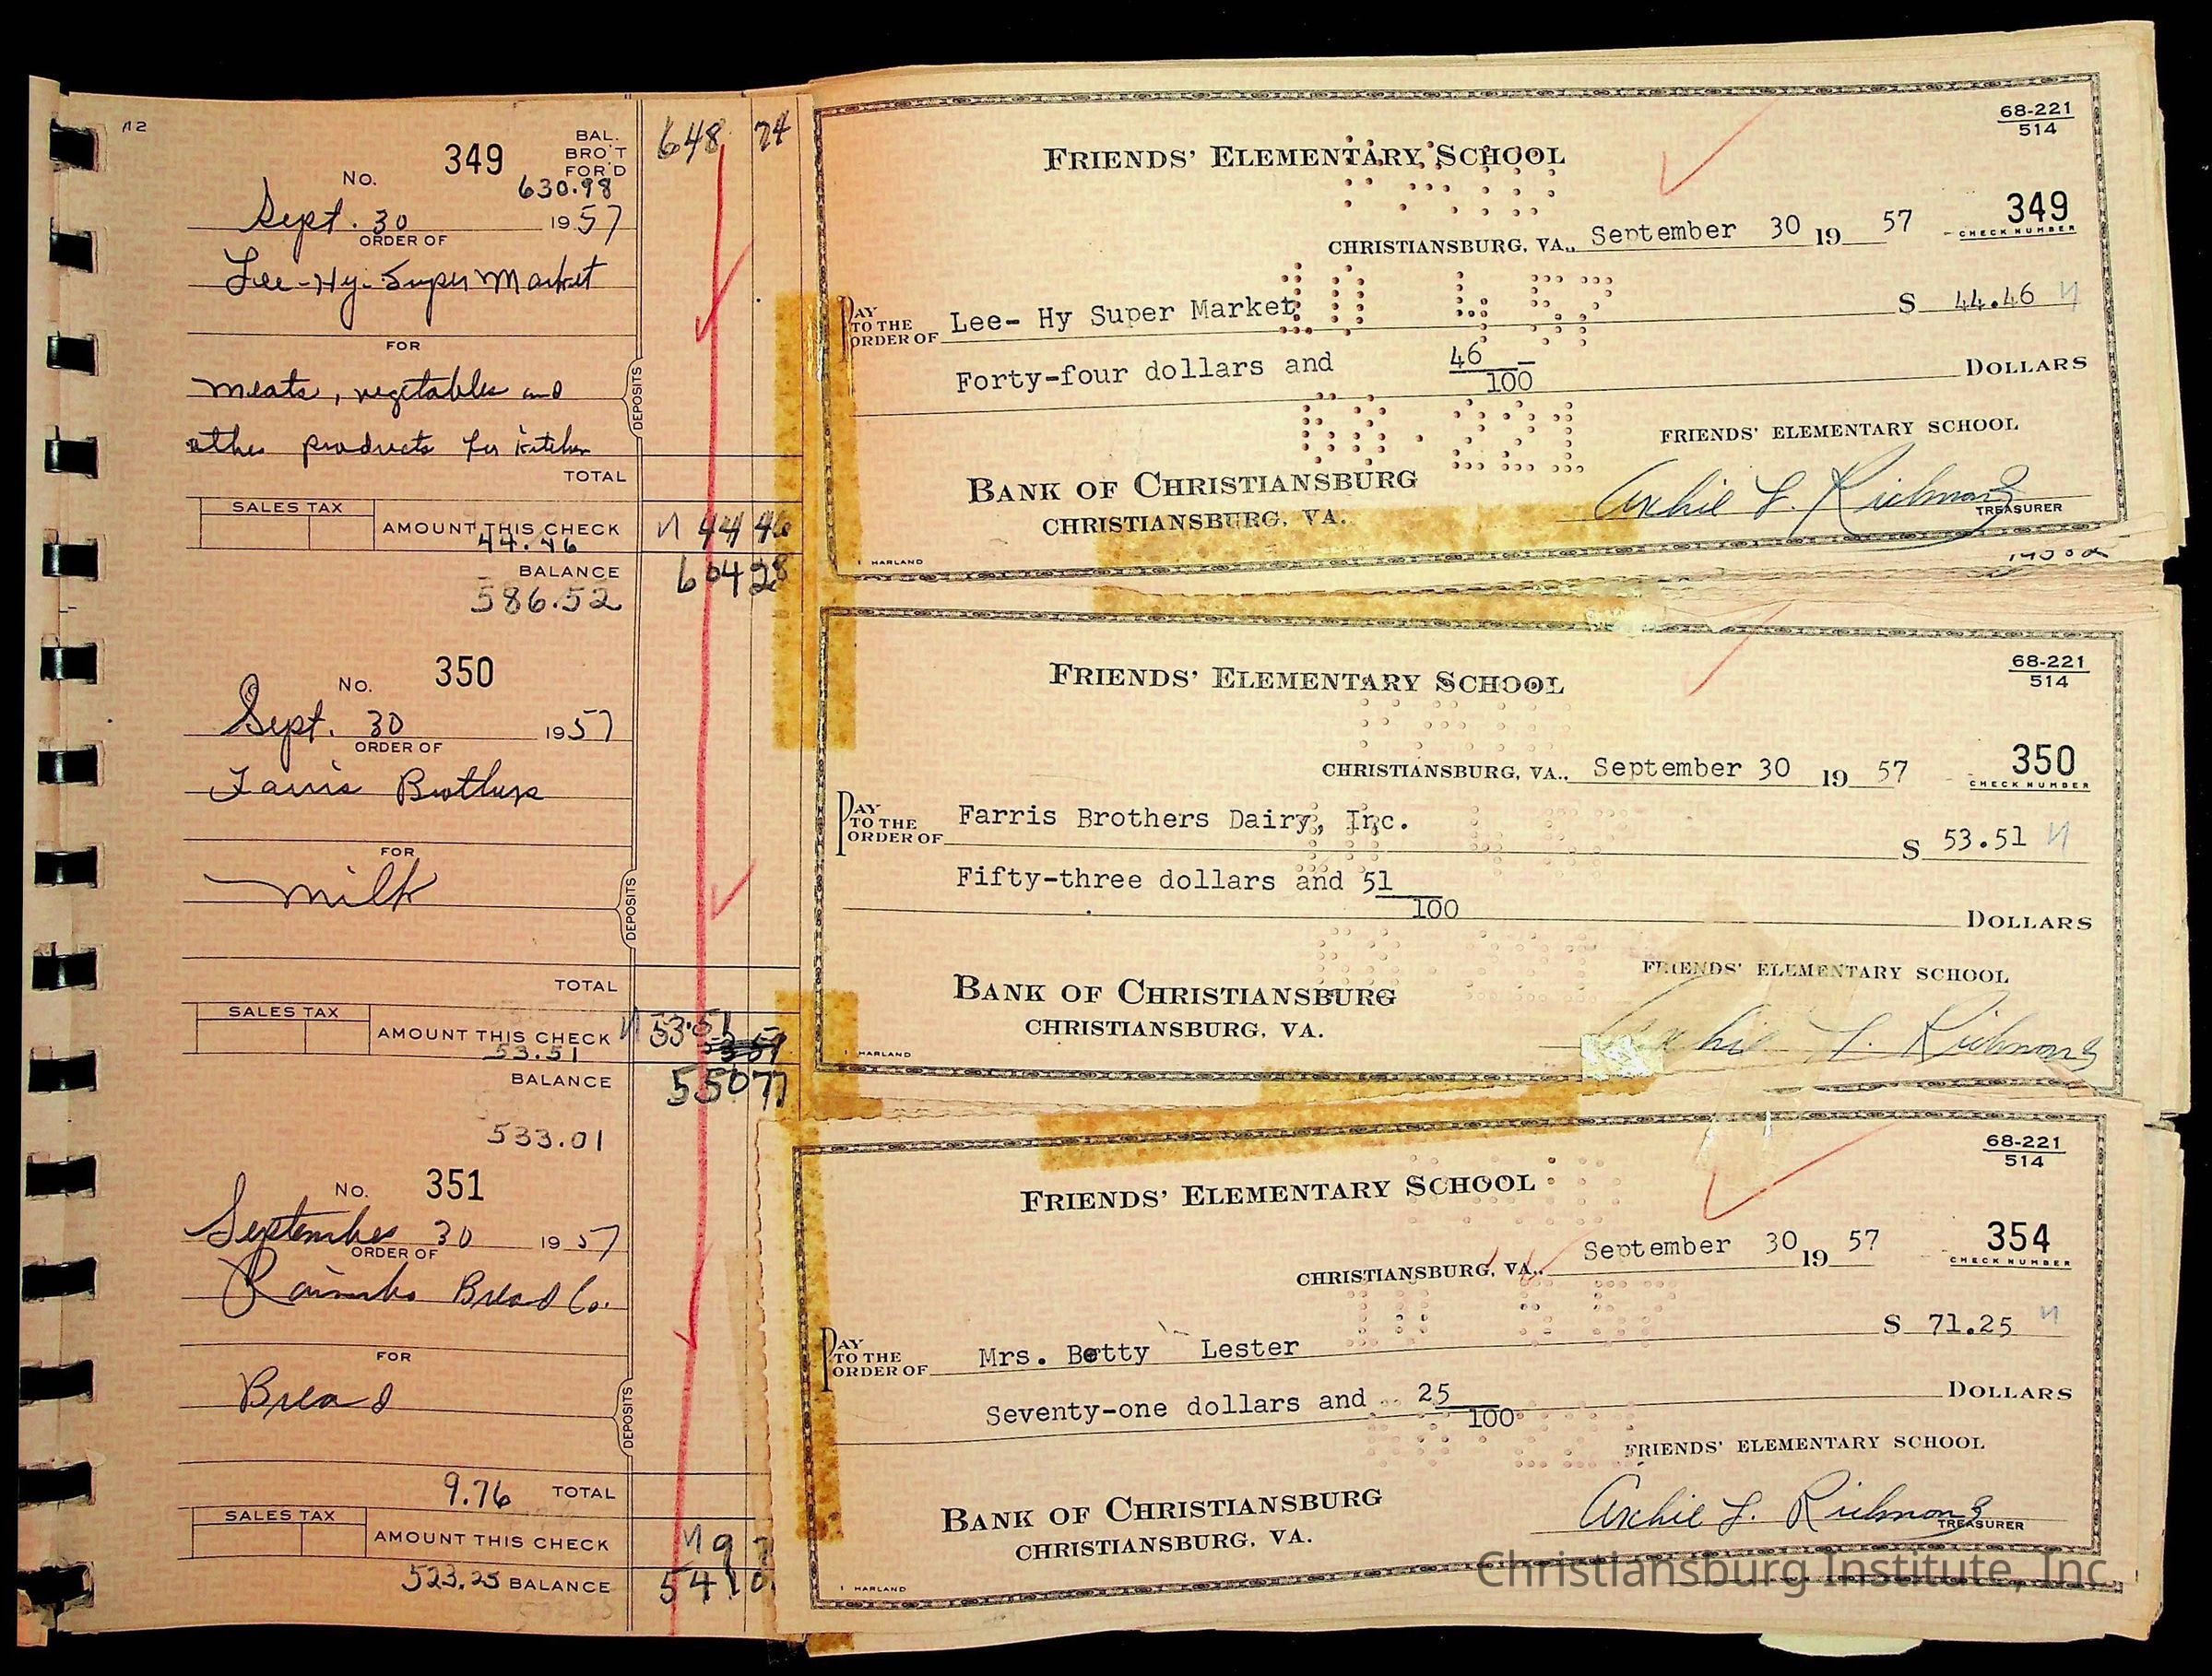 12
No. 349 BAL. BRO'T FOR'D 648 74
630.98
Sept. 30 1957
ORDER OF
Lee-Hy-Super Market
FOR
meats, vegetables and
other products for kitchen
DEPOSITS
TOTAL
SALES TAX
AMOUNT THIS CHECK 44 46
44.46
BALANCE 604 28
586.52
No. 350
Sept. 30 1957
ORDER OF
Farris Brothers
FOR
milk
DEPOSITS
TOTAL
SALES TAX
AMOUNT THIS CHECK 53.51
53.51
BALANCE 550 77
533.01
No. 351
September 30 1957
ORDER OF
Rainbo Bread Co.
FOR
Bread
DEPOSITS
9.76 TOTAL
SALES TAX
AMOUNT THIS CHECK 9 7
523.25 BALANCE 541 0
68-221
514
FRIENDS' ELEMENTARY SCHOOL
349
CHECK NUMBER
CHRISTIANSBURG, VA., September 30 19 57
10 4 57
PAY TO THE ORDER OF Lee- Hy Super Market $ 44.46
Forty-four dollars and 46/100 DOLLARS
68-221
FRIENDS' ELEMENTARY SCHOOL
BANK OF CHRISTIANSBURG
CHRISTIANSBURG, VA.
Archie L. Richmond
TREASURER
HARLAND
68-221
514
FRIENDS' ELEMENTARY SCHOOL
350
CHECK NUMBER
CHRISTIANSBURG, VA., September 30 19 57
PAY TO THE ORDER OF Farris Brothers Dairy, Inc. $ 53.51
Fifty-three dollars and 51/100 DOLLARS
FRIENDS' ELEMENTARY SCHOOL
BANK OF CHRISTIANSBURG
CHRISTIANSBURG, VA.
Archie L. Richmond
HARLAND
68-221
514
FRIENDS' ELEMENTARY SCHOOL
354
CHECK NUMBER
CHRISTIANSBURG, VA., September 30 19 57
PAY TO THE ORDER OF Mrs. Betty Lester $ 71.25
Seventy-one dollars and 25/100 DOLLARS
FRIENDS' ELEMENTARY SCHOOL
BANK OF CHRISTIANSBURG
CHRISTIANSBURG, VA.
Archie L. Richmond
TREASURER
HARLAND
Christiansburg Institute, Inc.